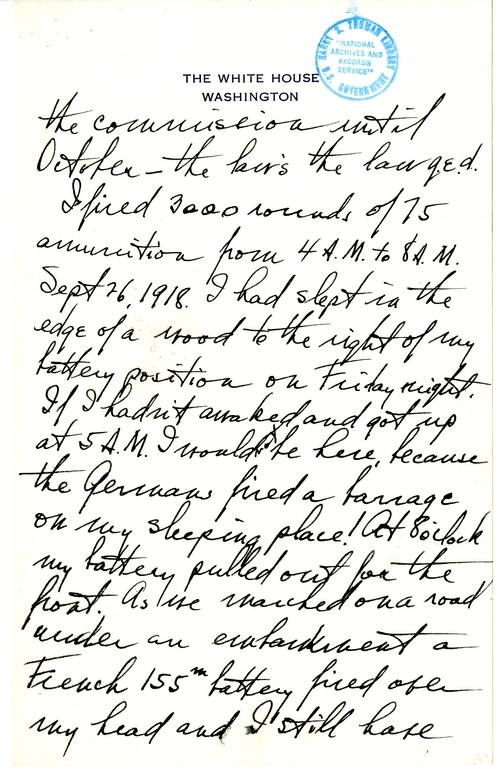 HARRY S. TRUMAN LIBRARY
"NATIONAL
ARCHIVES AND
RECORDS
SERVICE"
U.S. GOVERNMENT
THE WHITE HOUSE
WASHINGTON
the commission until
October – the law's the law q.e.d.
I fired 3000 rounds of 75
amunition from 4 A.M. to 8 A.M.
Sept 26, 1918. I had slept in the
edge of a wood to the right of my
battery position on Friday night.
If I hadn't awaked and got up
at 5 A.M. I would be here, because
the Germans fired a barrage
on my sleeping place! At 8 o'clock
my battery pulled out for the
front. As we marched on a road
under an embankment a
French 155 m battery fired over
my head and I still have